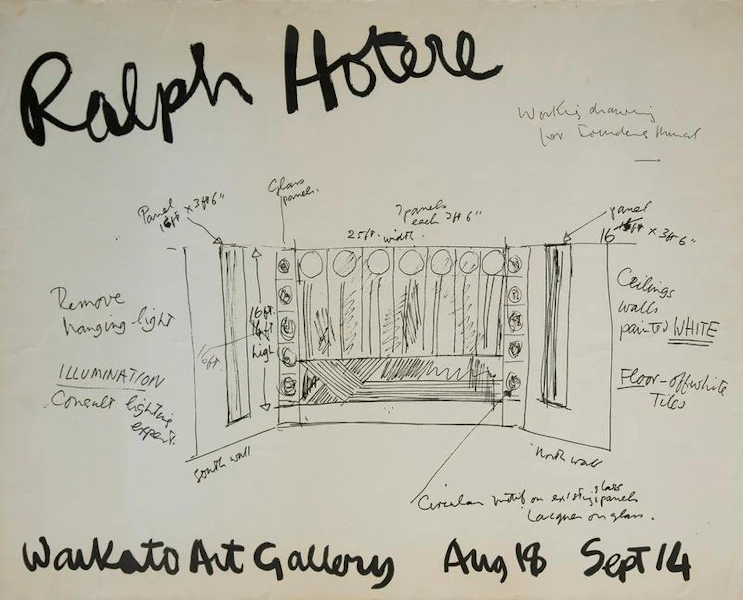 Ralph Hotere
Working drawing
for Founders Mural
Glass
panels.
Panel
16ft × 3ft 6"
7 panels
each 3ft 6"
25ft. width.
panel
16 ft × 3ft 6"
Remove
hanging light
16ft.
16ft
high
16ft.
Ceilings
walls
painted WHITE
ILLUMINATION
Consult lighting
expert.
Floor-offwhite
Tiles
South wall
North wall
Circular motif on existing glass panels
Lacquer on glass.
Waikato Art Gallery Aug 18 Sept 14